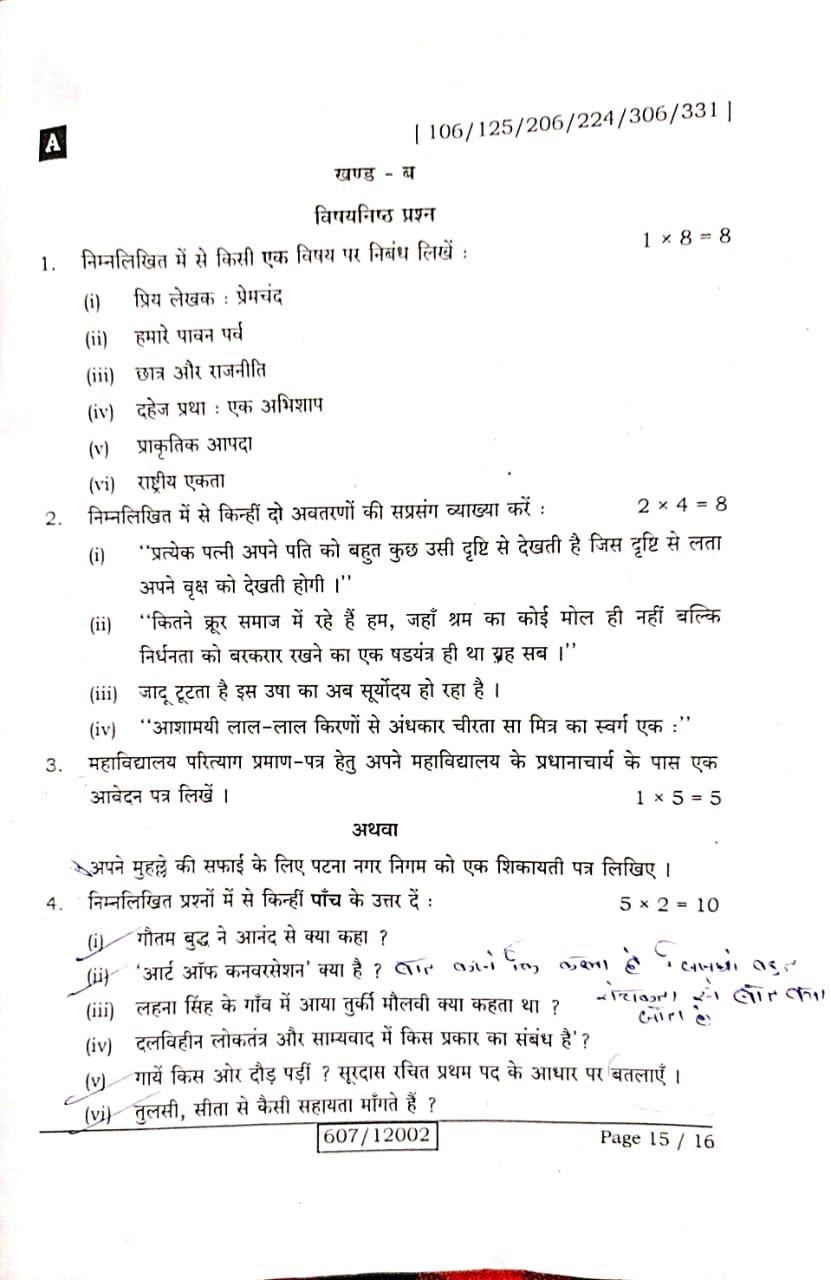 A
[ 106/125/206/224/306/331 ]
खण्ड - ब
विषयनिष्ठ प्रश्न
1. निम्नलिखित में से किसी एक विषय पर निबंध लिखें : 1 × 8 = 8
(i) प्रिय लेखक : प्रेमचंद
(ii) हमारे पावन पर्व
(iii) छात्र और राजनीति
(iv) दहेज प्रथा : एक अभिशाप
(v) प्राकृतिक आपदा
(vi) राष्ट्रीय एकता
2. निम्नलिखित में से किन्हीं दो अवतरणों की सप्रसंग व्याख्या करें : 2 × 4 = 8
(i) ‘‘प्रत्येक पत्नी अपने पति को बहुत कुछ उसी दृष्टि से देखती है जिस दृष्टि से लता
अपने वृक्ष को देखती होगी ।’’
(ii) ‘‘कितने क्रूर समाज में रहे हैं हम, जहाँ श्रम का कोई मोल ही नहीं बल्कि
निर्धनता को बरकरार रखने का एक षडयंत्र ही था यह सब ।’’
(iii) जादू टूटता है इस उषा का अब सूर्योदय हो रहा है ।
(iv) ‘‘आशामयी लाल-लाल किरणों से अंधकार चीरता सा मित्र का स्वर्ग एक :’’
3. महाविद्यालय परित्याग प्रमाण-पत्र हेतु अपने महाविद्यालय के प्रधानाचार्य के पास एक
आवेदन पत्र लिखें । 1 × 5 = 5
अथवा
अपने मुहल्ले की सफाई के लिए पटना नगर निगम को एक शिकायती पत्र लिखिए ।
4. निम्नलिखित प्रश्नों में से किन्हीं पाँच के उत्तर दें : 5 × 2 = 10
(i) गौतम बुद्ध ने आनंद से क्या कहा ?
(ii) ‘आर्ट ऑफ कनवरसेशन’ क्या है ? बात करने कि कला है
(iii) लहना सिंह के गाँव में आया तुर्की मौलवी क्या कहता था ?
(iv) दलविहीन लोकतंत्र और साम्यवाद में किस प्रकार का संबंध है ?
(v) गायें किस ओर दौड़ पड़ीं ? सूरदास रचित प्रथम पद के आधार पर बतलाएँ ।
(vi) तुलसी, सीता से कैसी सहायता माँगते हैं ?
607/12002
Page 15 / 16